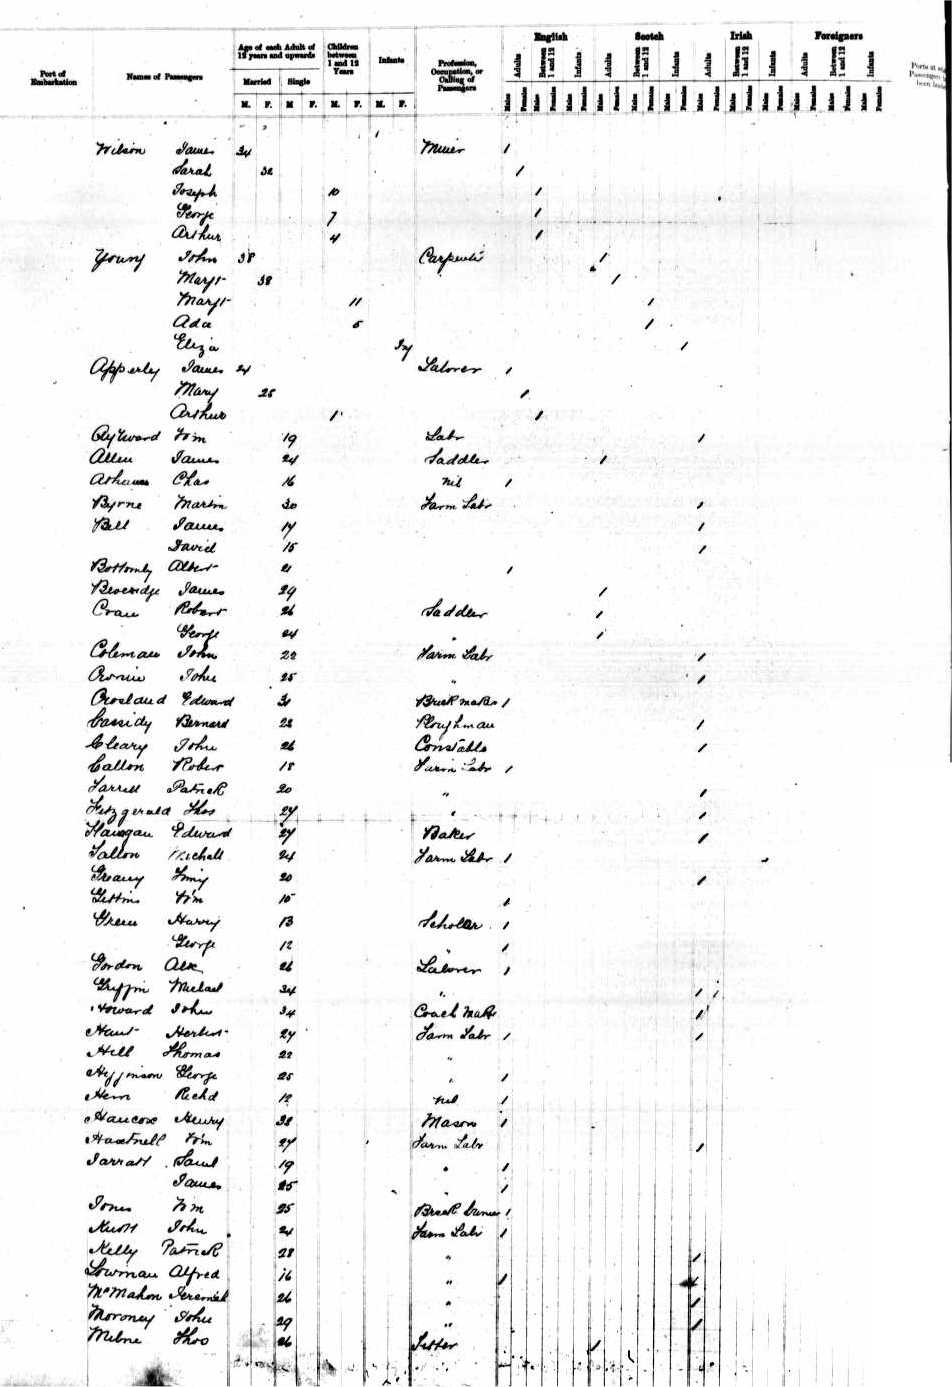 Port of Embarkation
Names of Passengers
Age of each Adult of 12 years and upwards
Children between 1 and 12 Years
Infants
Profession, Occupation, or Calling of Passengers
English Scotch Irish Foreigners
Married Single
M. F. M F. M. F. M. F.
Adults Between 1 and 12 Infants Adults Between 1 and 12 Infants Adults Between 1 and 12 Infants Adults Between 1 and 12 Infants
Males Females Males Females Males Females Males Females Males Females Males Females Males Females Males Females Males Females Males Females Males Females Males Females
Wilson James 34 Miner 1
Sarah 32 1
Joseph 10 1
George 7 1
Arthur 4 1
Young John 38 Carpenter 1
Margt 38 1
Margt 11 1
Ada 5 1
Eliza 1
Apperley James 24 Laborer 1
Mary 25 1
Arthur 1 1
Aylward Wm 19 Labr 1
Allen James 24 Saddler 1
Chas 16 nil 1
Byrne Martin 30 Farm Labr 1
Bell James 17 1
David 15 1
Bottomly Albert 21 1
Beveridge James 29 1
Robert 26 Saddler 1
George 24 " 1
Coleman John 22 Farm Labr 1
Cronin John 25 " 1
Crosland Edward 31 Brick maker 1
Cassidy Bernard 28 Ploughman 1
Cleary John 26 Constable 1
Callon Robert 18 Farm Labr 1
Farrell Patrick 20 " 1
Fitzgerald Thos 27 " 1
Flanagan Edward 27 Baker 1
Fallon Michell 24 Farm Labr 1
Greany 20 1
Gittins Wm 15 1
Green Harry 13 Scholar 1
George 12 " 1
Gordon Alex 26 Laborer 1
Griffin Michael 34 " 1
Howard John 34 Coach Maker 1
Herbert 27 Farm Labr 1 1
Hill Thomas 22 "
Higginson George 25 " 1
Hern Richd 12 nil 1
Hancox Henry 38 Mason 1
Hartnell Wm 27 Farm Labr 1
Jarratt Saml 19 " 1
James 25 " 1
Jones Wm 25 Brick 1
Knott John 24 Farm Labr 1
Kelly Patrick 28 " 1
Lowman Alfred 16 " 1
McMahon Jeremiah 26 " 1
Moroney John 29 " 1
Milne Thos 26 Fitter 1